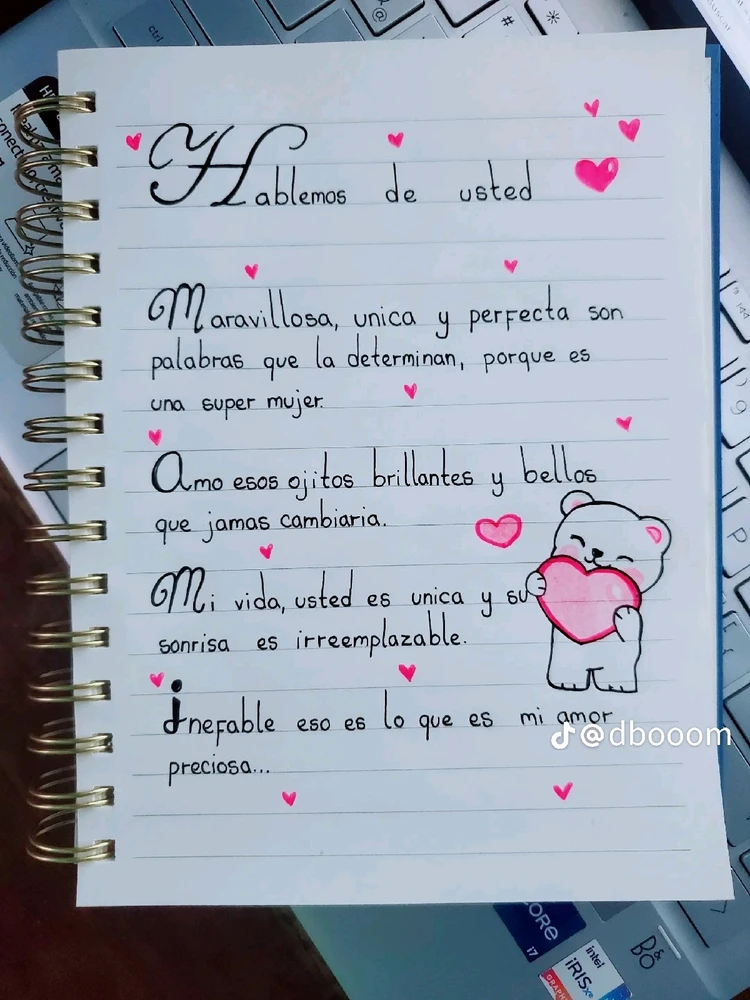 Hablemos de usted
Maravillosa, unica y perfecta son
palabras que la determinan, porque es
una super mujer.
Amo esos ojitos brillantes y bellos
que jamas cambiaria.
Mi vida, usted es unica y su
sonrisa es irreemplazable.
inefable eso es lo que es mi amor
preciosa...
@dbooom
ctrl
@
#
CORE
i7
intel
iRIS xe